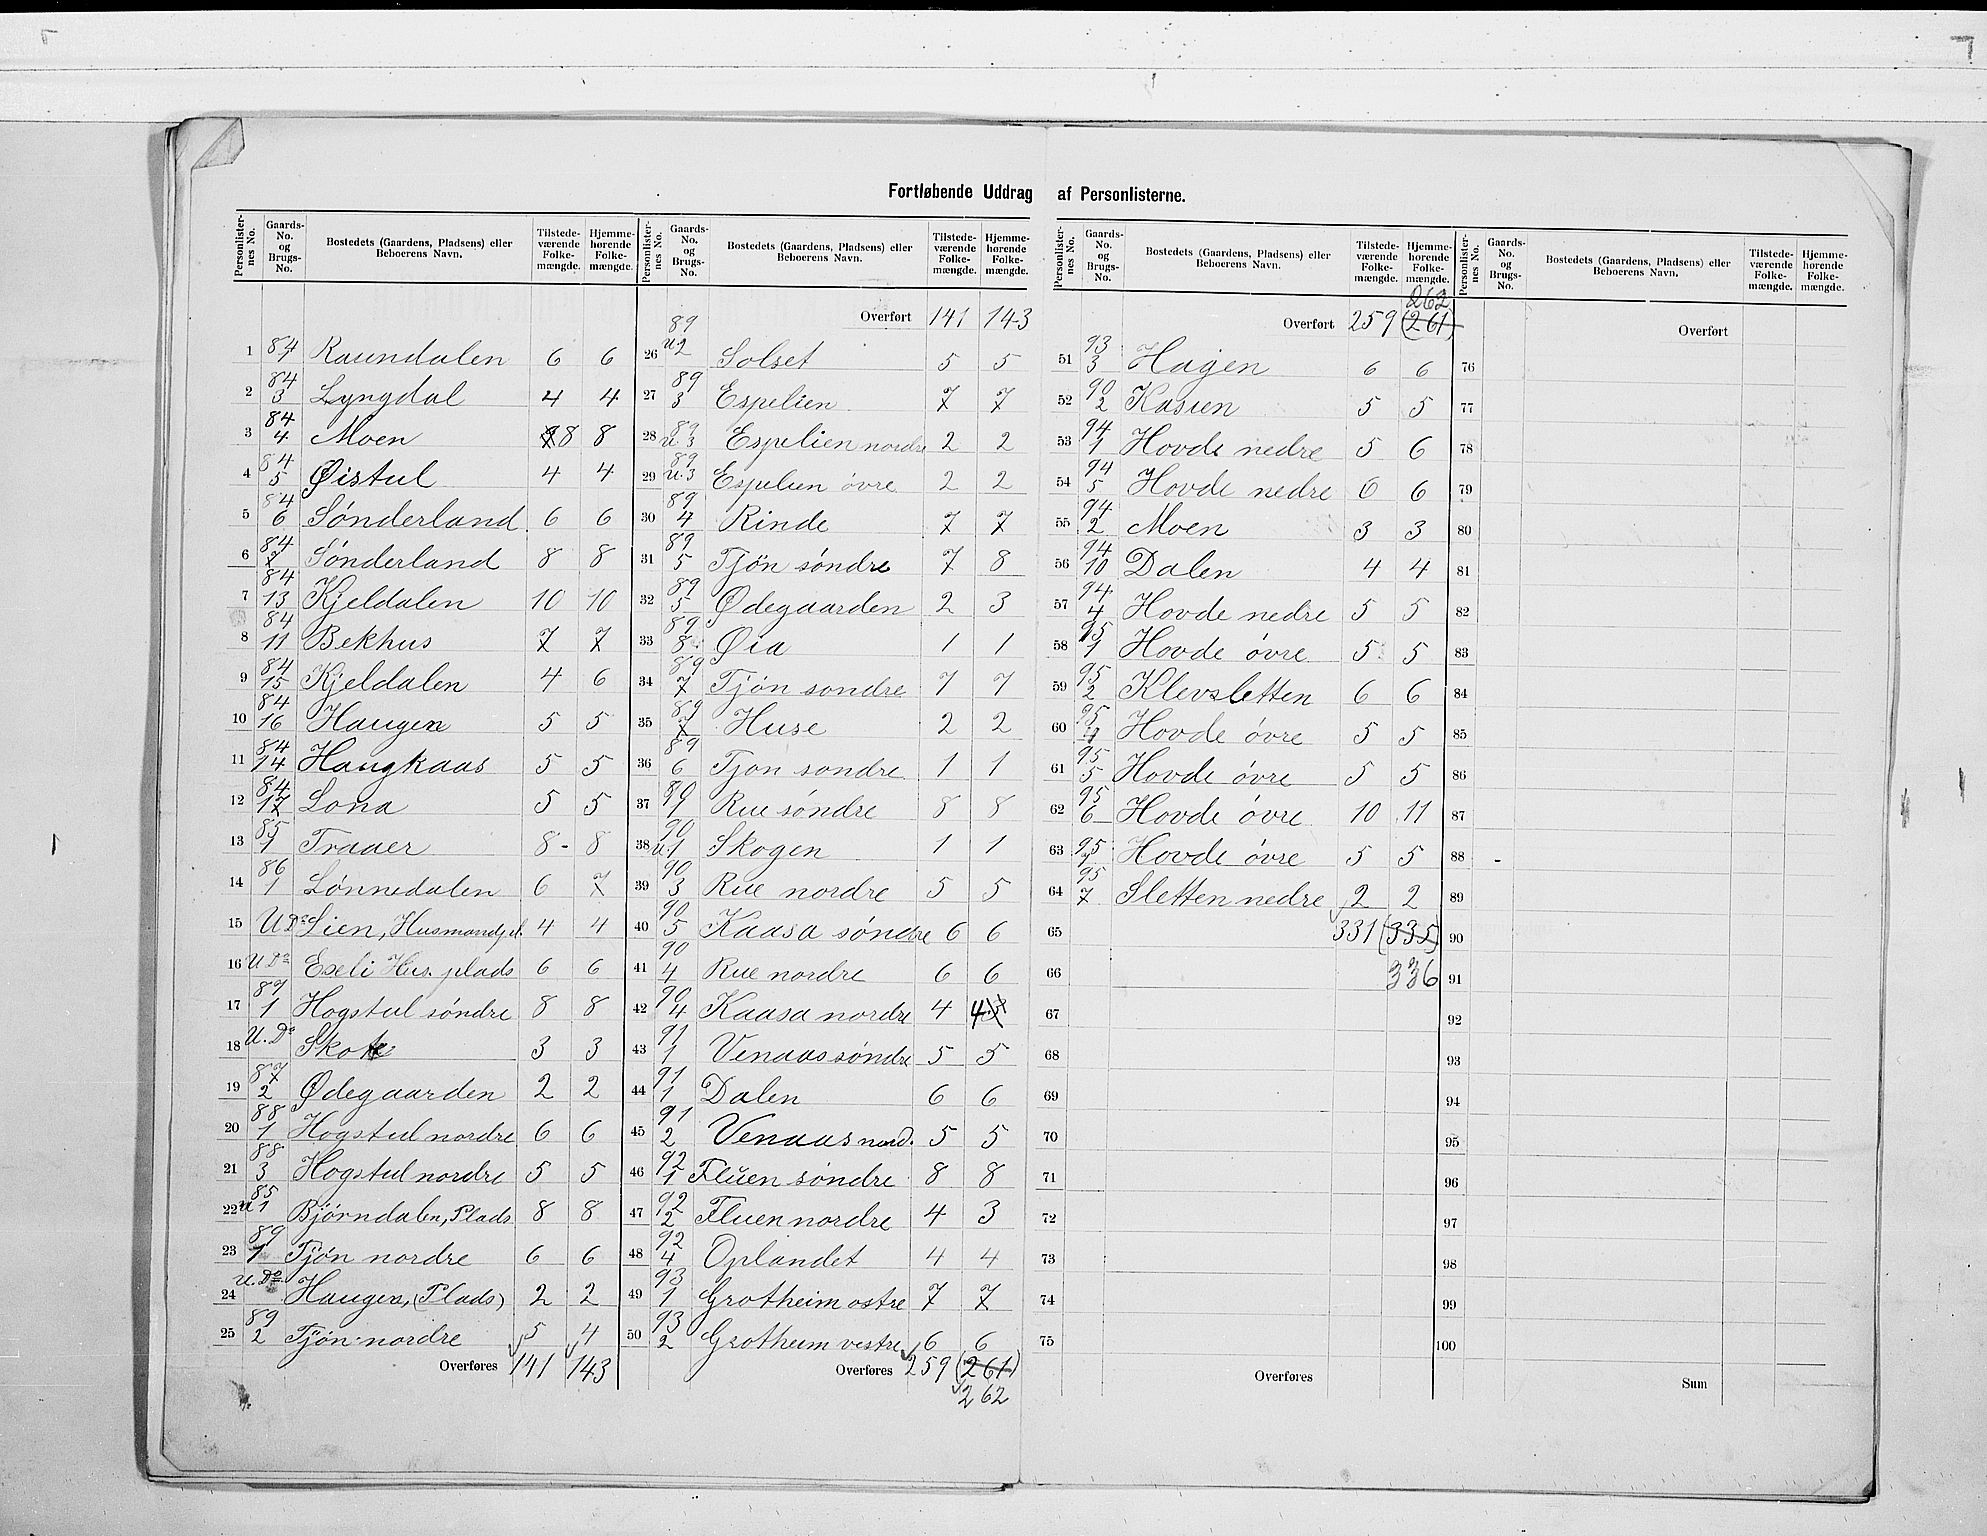 Fortløbende Uddrag af Personlisternes.
Personlister- nes No. | Gaards- No. og Brugs- No. | Bostedets (Gaardens, Pladsens) eller Beboerens Navn. | Tilstede- værende Folke- mængde. | Hjemme- hørende Folke- mængde.
1 84 Raundalen 6 6
2 84 3 Lyngdal 4 4
3 84 4 Moen 8 8
4 84 5 Øistul 4 4
5 84 6 Sønderland 6 6
6 84 7 Sønderland 8 8
7 84 13 Kjeldalen 10 10
8 84 11 Bekhus 7 7
9 84 15 Kjeldalen 4 6
10 84 16 Haugen 5 5
11 84 14 Haugkaas 5 5
12 84 17 Lona 5 5
13 85 1 Traaer 8 - 8
14 86 1 Lønnedalen 6 7
15 U Do Lien, Husmandspl. 4 4
16 U Do Eseli Hus. plads 6 6
17 87 1 Hogstul søndre 8 8
18 U. Do 3 3
19 87 2 Ødegaarden 2 2
20 88 1 Hogstul nordre 6 6
21 88 3 Hogstul nordre 5 5
22 85 u 1 Bjørndalen, Plads 8 8
23 89 1 Tjøn nordre 6 6
24 U. Do Haugen, (Plads) 2 2
25 89 2 Tjøn nordre 5 4
Overføres 141 143
Personlister- nes No. | Gaards- No. og Brugs- No. | Bostedets (Gaardens, Pladsens) eller Beboerens Navn. | Tilstede- værende Folke- mængde. | Hjemme- hørende Folke- mængde.
Overført 141 143
26 89 u 2 Solset 5 5
27 89 3 Espelien 7 7
28 89 u. 3 Espelien nordre 2 2
29 89 u. 3 Espelien øvre 2 2
30 89 4 Rinde 7 7
31 89 5 Tjøn søndre 7 8
32 89 5 Ødegaarden 2 3
33 89 8 Øia 1 1
34 89 7 Tjøn sondre 7 7
35 89 7 Huse 2 2
36 89 6 Tjon sondre 1 1
37 90 1 Rue søndre 8 8
38 90 u. 1 Skogen 1 1
39 90 3 Rue nordre 5 5
40 90 5 Kaasa søndre 6 6
41 90 4 Rue nordre 6 6
42 90 4 Kaasa nordre 4 4
43 91 1 Venaas søndre 5 5
44 91 1 Dalen 6 6
45 91 2 Venaas nord. 5 5
46 92 1 Fluen søndre 8 8
47 92 2 Fluen nordre 4 3
48 92 4 Oplandet 4 4
49 93 1 Grotheim ostre 7 7
50 93 2 Grotheim vestre 6 6
Overføres 259 (261)
262
Personlister- nes No. | Gaards- No. og Brugs- No. | Bostedets (Gaardens, Pladsens) eller Beboerens Navn. | Tilstede- værende Folke- mængde. | Hjemme- hørende Folke- mængde.
262
Overført 259 (261)
51 93 3 Hagen 6 6
52 90 2 Kasien 5 5
53 94 1 Hovde nedre 5 6
54 94 5 Hovde nedre 6 6
55 94 2 Moen 3 3
56 94 10 Dalen 4 4
57 94 4 Hovde nedre 5 5
58 95 1 Hovde øvre 5 5
59 95 2 Klevsletten 6 6
60 95 4 Hovde øvre 5 5
61 95 5 Hovde øvre 5 5
62 95 6 Hovde øvre 10 11
63 95 Hovde øvre 5 5
64 95 7 Sletten nedre 2 2
65 331 (335)
66 336
67
68
69
70
71
72
73
74
75
Overføres
Personlister- nes No. | Gaards- No. og Brugs- No. | Bostedets (Gaardens, Pladsens) eller Beboerens Navn. | Tilstede- værende Folke- mængde. | Hjemme- hørende Folke- mængde.
Overført
76
77
78
79
80
81
82
83
84
85
86
87
88
89
90
91
92
93
94
95
96
97
98
99
100
Sum